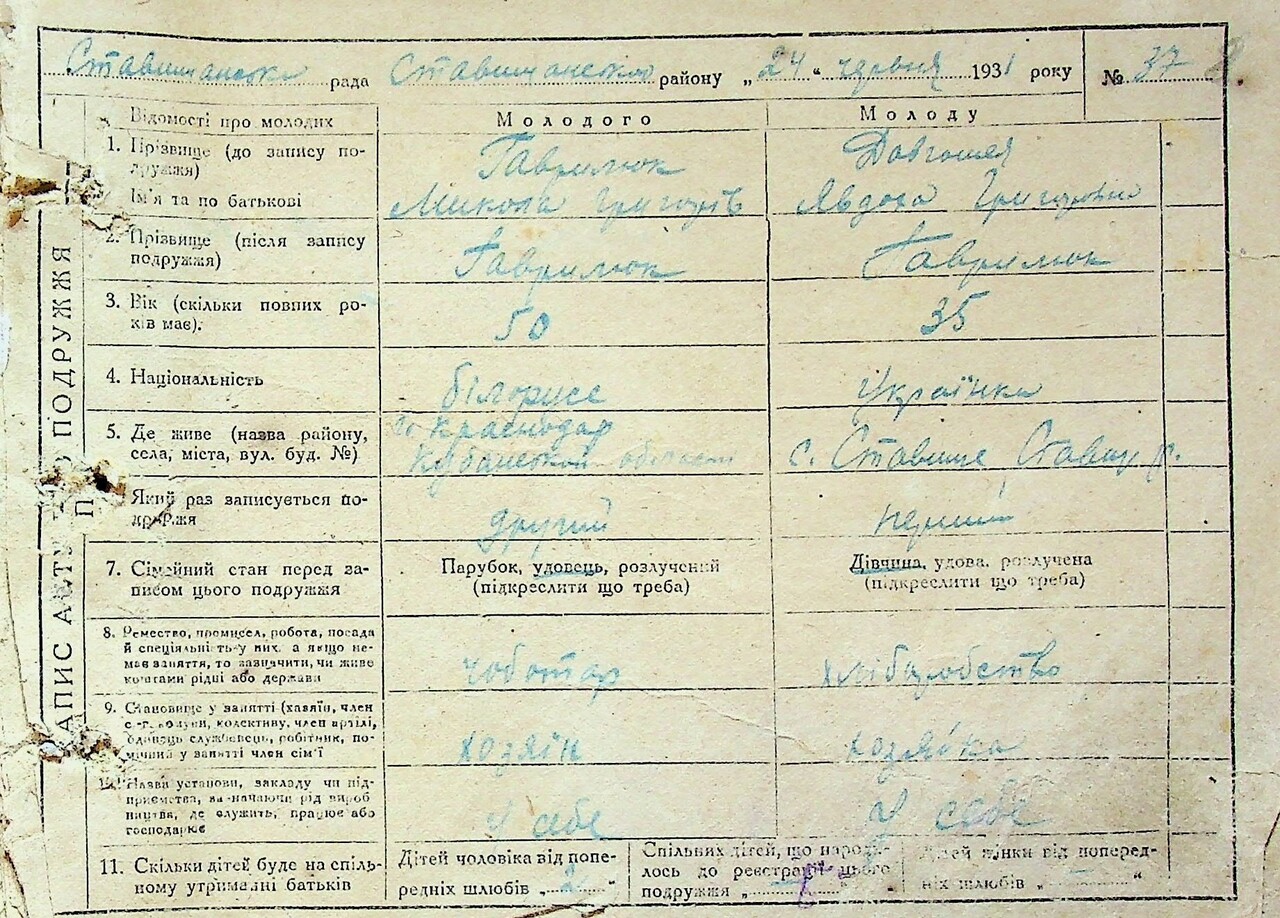 Ставищанська рада Ставищанського району „24“ червня 1931 року № 37
Відомості про молодих
Молодого
Молоду
1. Прізвище (до запису по-
дружжя)
Гаврилюк
Довгошея
Ім'я та по батькові
Микола Григорів
Явдоха Григорівна
2. Прізвище (після запису
подружжя)
Гаврилюк
Гаврилюк
3. Вік (скільки повних ро-
ків має).
50
35
4. Національність
білорусс
Українка
5. Де живе (назва району,
села, міста, вул. буд. №)
Краснодар
Кубанської області
с. Ставище Ставищ. р.
Який раз записується по-
дружжя
другий
перший
7. Сімейний стан перед за-
писом цього подружжя
Парубок, удовець, розлучений
(підкреслити що треба)
Дівчина, удова, розлучена
(підкреслити що треба)
8. Ремество, промисел, робота, посада
й спеціяльність у них, а якщо не-
має заняття, то зазначити, чи живе
коштами рідні або держави
чоботар
хліборобство
9. Становище у занятті (хазяїн, член
колективу, член артілі,
одинець службовець, робітник, по-
мічний у занятті член сім'ї
хозяїн
хозяйка
10. Назва установи, закладу чи під-
приємства, зазначаючи рід вироб
ництва, де служить, працює або
господарює
У себе
У себе
11. Скільки дітей буде на спіль-
ному утриманні батьків
Дітей чоловіка від попе-
редніх шлюбів „2“
Спільних дітей, що народи-
лось до реєстрації цього
подружжя „ “
Дітей жінки від поперед-
ніх шлюбів „–“
ЗАПИС АКТУ ПРО ПОДРУЖЖЯ